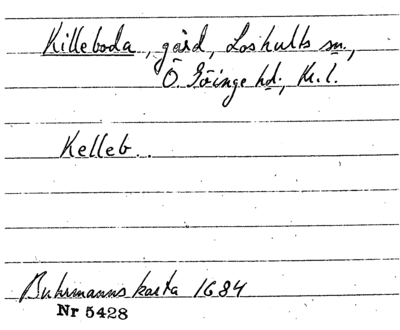 Killeboda, gård, Loshults sn.,
Ö. Göinge hd., Kr. l.
Kelleb..
Buhrmanns karta 1684
Nr 5428